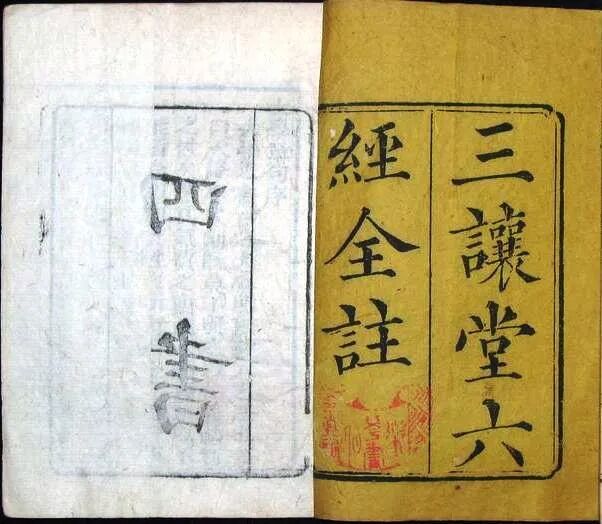 三讓堂六
經全註
四書